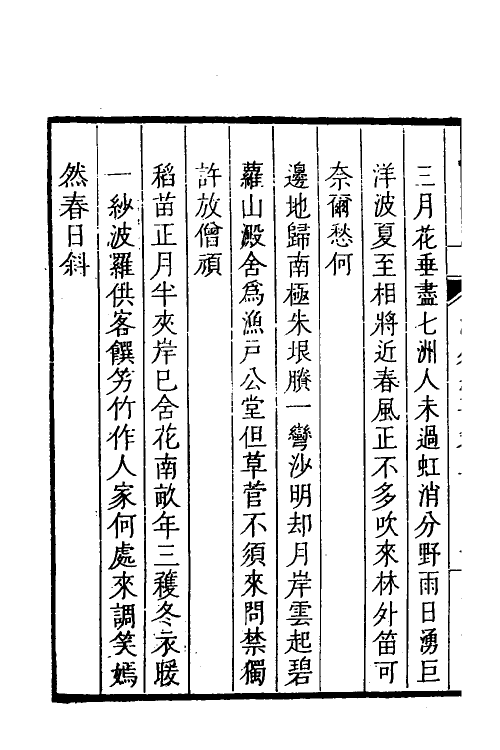 三月花垂盡七洲人未過虹消分野雨日湧巨
洋波夏至相將近春風正不多吹來林外笛可
奈爾愁何
邊地歸南極朱垠賸一彎沙明却月岸雲起碧
蘿山殿舍爲漁戸公堂但草菅不須來問禁獨
許放僧頑
稻苗正月半夾岸已舍花南畝年三穫冬衣暖
一紗波羅供客饌竻竹作人家何處來調笑嫣
然春日斜